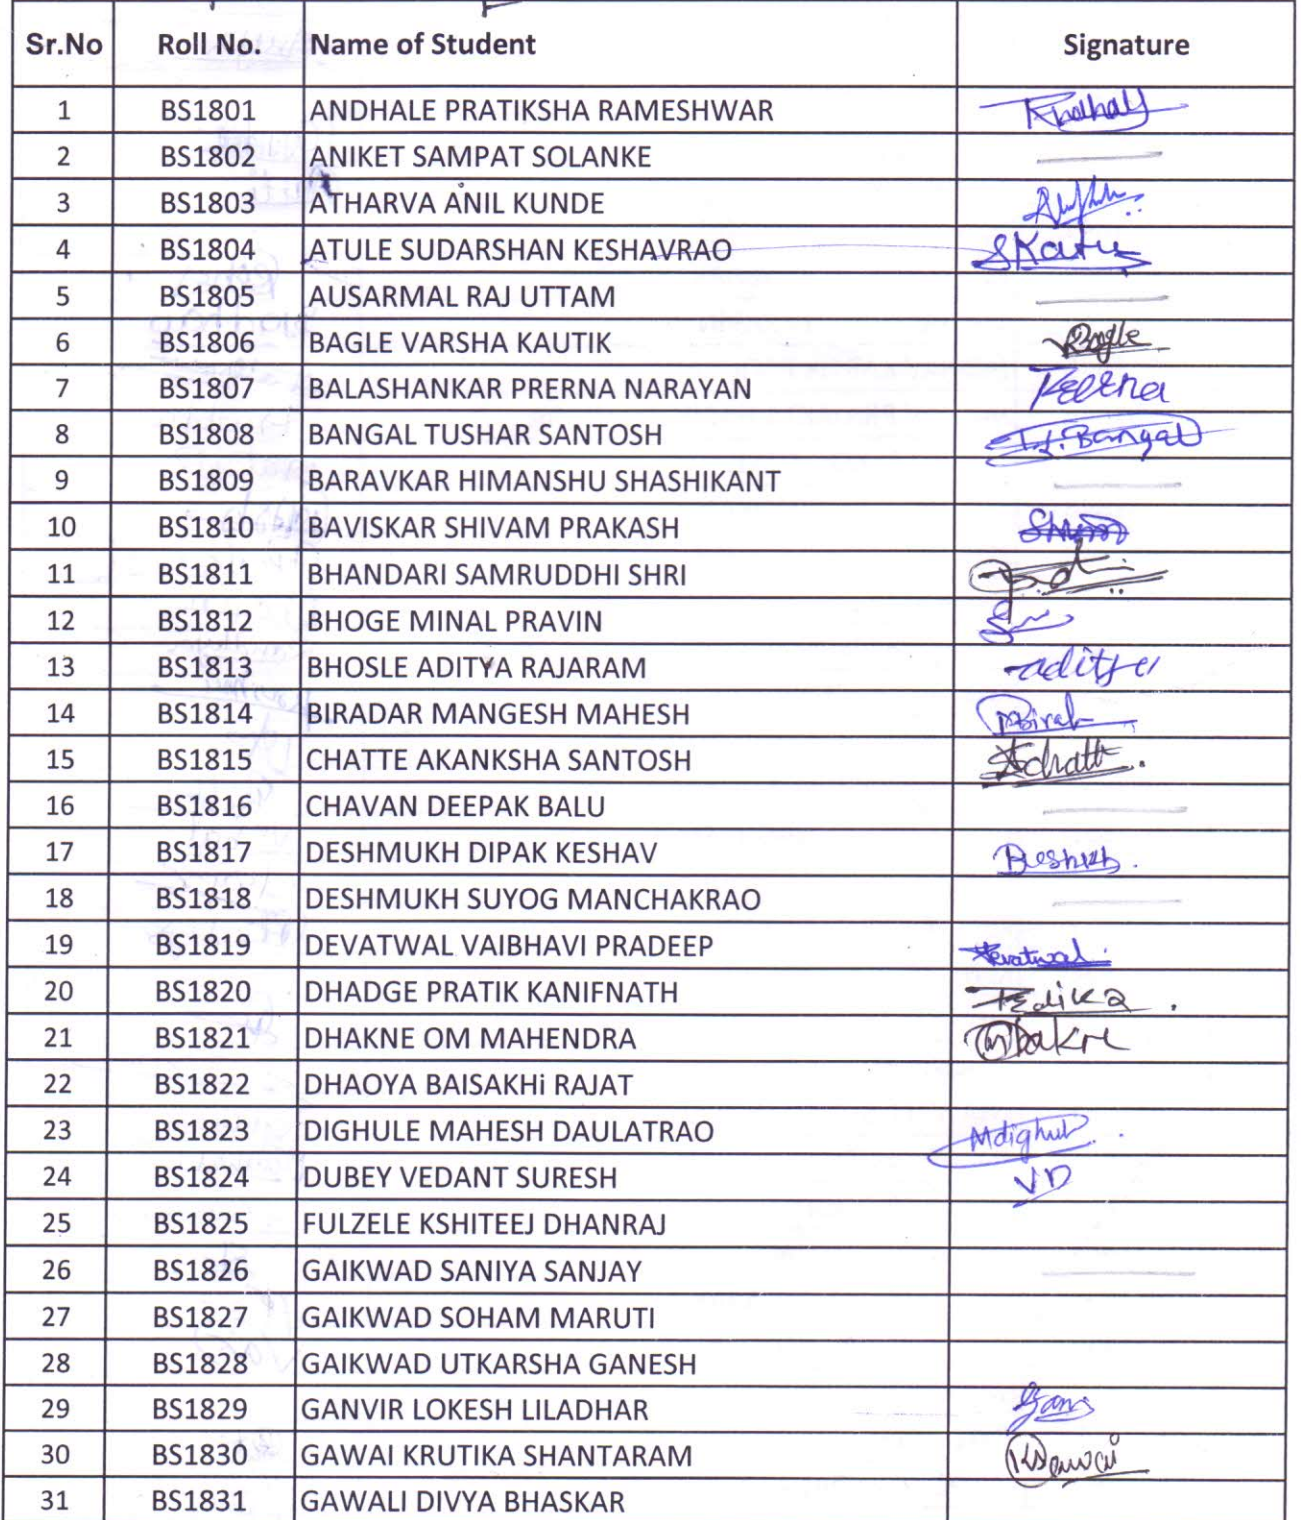 Sr.No Roll No. Name of Student Signature
1 BS1801 ANDHALE PRATIKSHA RAMESHWAR
2 BS1802 ANIKET SAMPAT SOLANKE
3 BS1803 ATHARVA ANIL KUNDE
4 BS1804 ATULE SUDARSHAN KESHAVRAO
5 BS1805 AUSARMAL RAJ UTTAM
6 BS1806 BAGLE VARSHA KAUTIK Bagle
7 BS1807 BALASHANKAR PRERNA NARAYAN Prerna
8 BS1808 BANGAL TUSHAR SANTOSH T.S.Bangal
9 BS1809 BARAVKAR HIMANSHU SHASHIKANT
10 BS1810 BAVISKAR SHIVAM PRAKASH
11 BS1811 BHANDARI SAMRUDDHI SHRI
12 BS1812 BHOGE MINAL PRAVIN
13 BS1813 BHOSLE ADITYA RAJARAM aditya
14 BS1814 BIRADAR MANGESH MAHESH
15 BS1815 CHATTE AKANKSHA SANTOSH
16 BS1816 CHAVAN DEEPAK BALU
17 BS1817 DESHMUKH DIPAK KESHAV
18 BS1818 DESHMUKH SUYOG MANCHAKRAO
19 BS1819 DEVATWAL VAIBHAVI PRADEEP
20 BS1820 DHADGE PRATIK KANIFNATH
21 BS1821 DHAKNE OM MAHENDRA
22 BS1822 DHAOYA BAISAKHi RAJAT
23 BS1823 DIGHULE MAHESH DAULATRAO Mdighul
24 BS1824 DUBEY VEDANT SURESH VD
25 BS1825 FULZELE KSHITEEJ DHANRAJ
26 BS1826 GAIKWAD SANIYA SANJAY
27 BS1827 GAIKWAD SOHAM MARUTI
28 BS1828 GAIKWAD UTKARSHA GANESH
29 BS1829 GANVIR LOKESH LILADHAR
30 BS1830 GAWAI KRUTIKA SHANTARAM
31 BS1831 GAWALI DIVYA BHASKAR